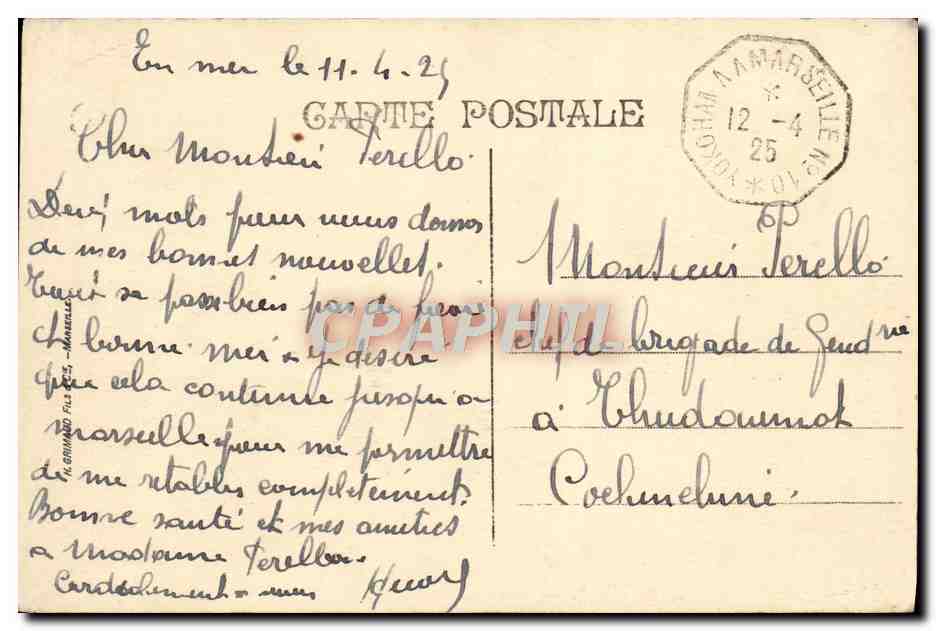 En mer le 11-4-25
CARTE POSTALE
Cher Monsieur Perello.
Deux mots pour vous donner
de mes bonnes nouvelles.
Tout se passe bien pas de
et bonne mer. je désire
que cela continue jusqu'a
marseille pour me permettre
de me rétablir complètement.
Bonne santé et mes amitiés
a Madame Perello.
Cordialement a vous
H. GRIMAUD FILS & CIE, - MARSEILLE
YOKOHAMA A MARSEILLE No 10
12 -4
25
Monsieur Perello
chef de brigade de Gendrie
à Thudaumot
Cochinchine.
CPAPHIL